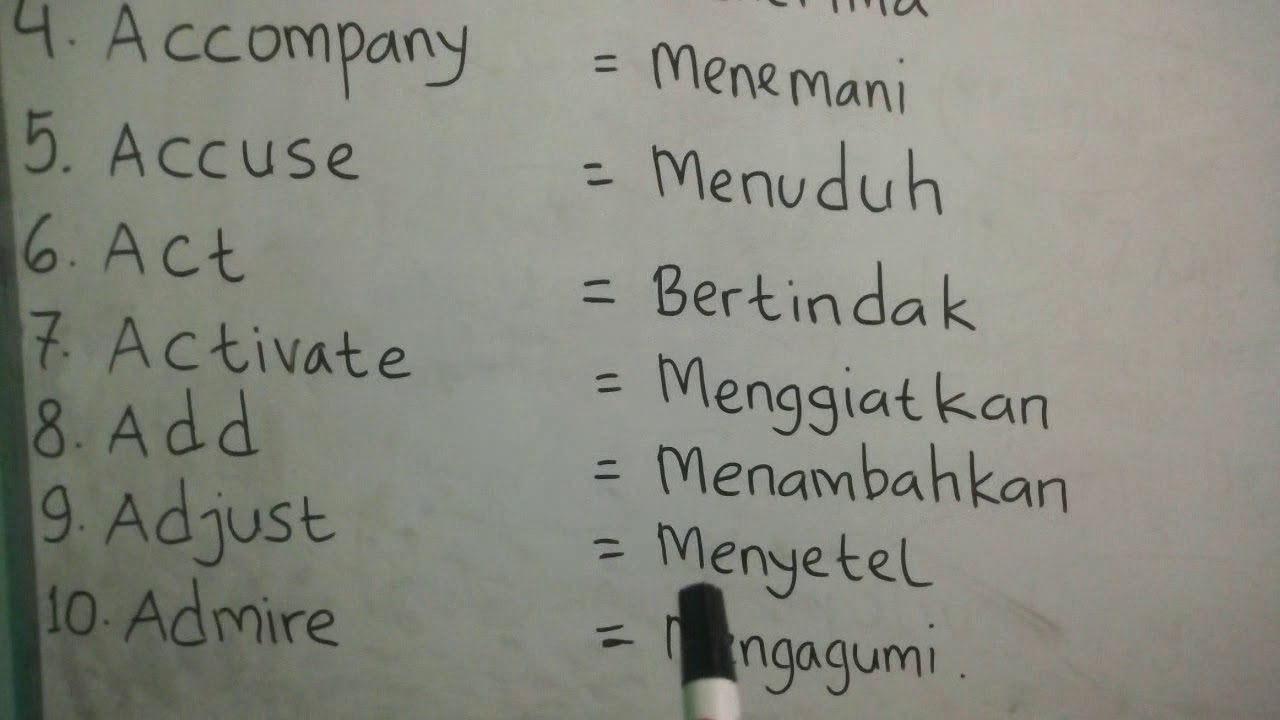 4. Accompany = Menemani
5. Accuse = Menuduh
6. Act = Bertindak
7. Activate = Menggiatkan
8. Add = Menambahkan
9. Adjust = Menyetel
10. Admire =